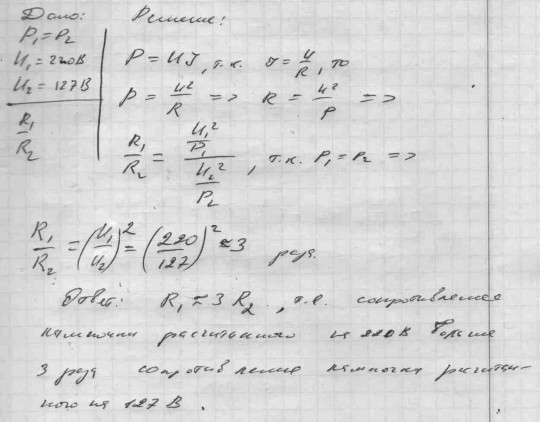 Дано:
P₁=P₂
U₁=220В
U₂=127В
R₁/R₂
Решение:
P=UJ, т.к. J=U/R, то
P=U²/R => R=U²/P =>
R₁/R₂=(U₁²/P₁)/(U₂²/P₂), т.к. P₁=P₂ =>
R₁/R₂=(U₁/U₂)²=(220/127)²≈3 раза.
Ответ: R₁≈3R₂, т.е. сопротивление
лампочки расчитанного на 220В больше
3 раза сопротивление лампочки расчитан-
ного на 127В.